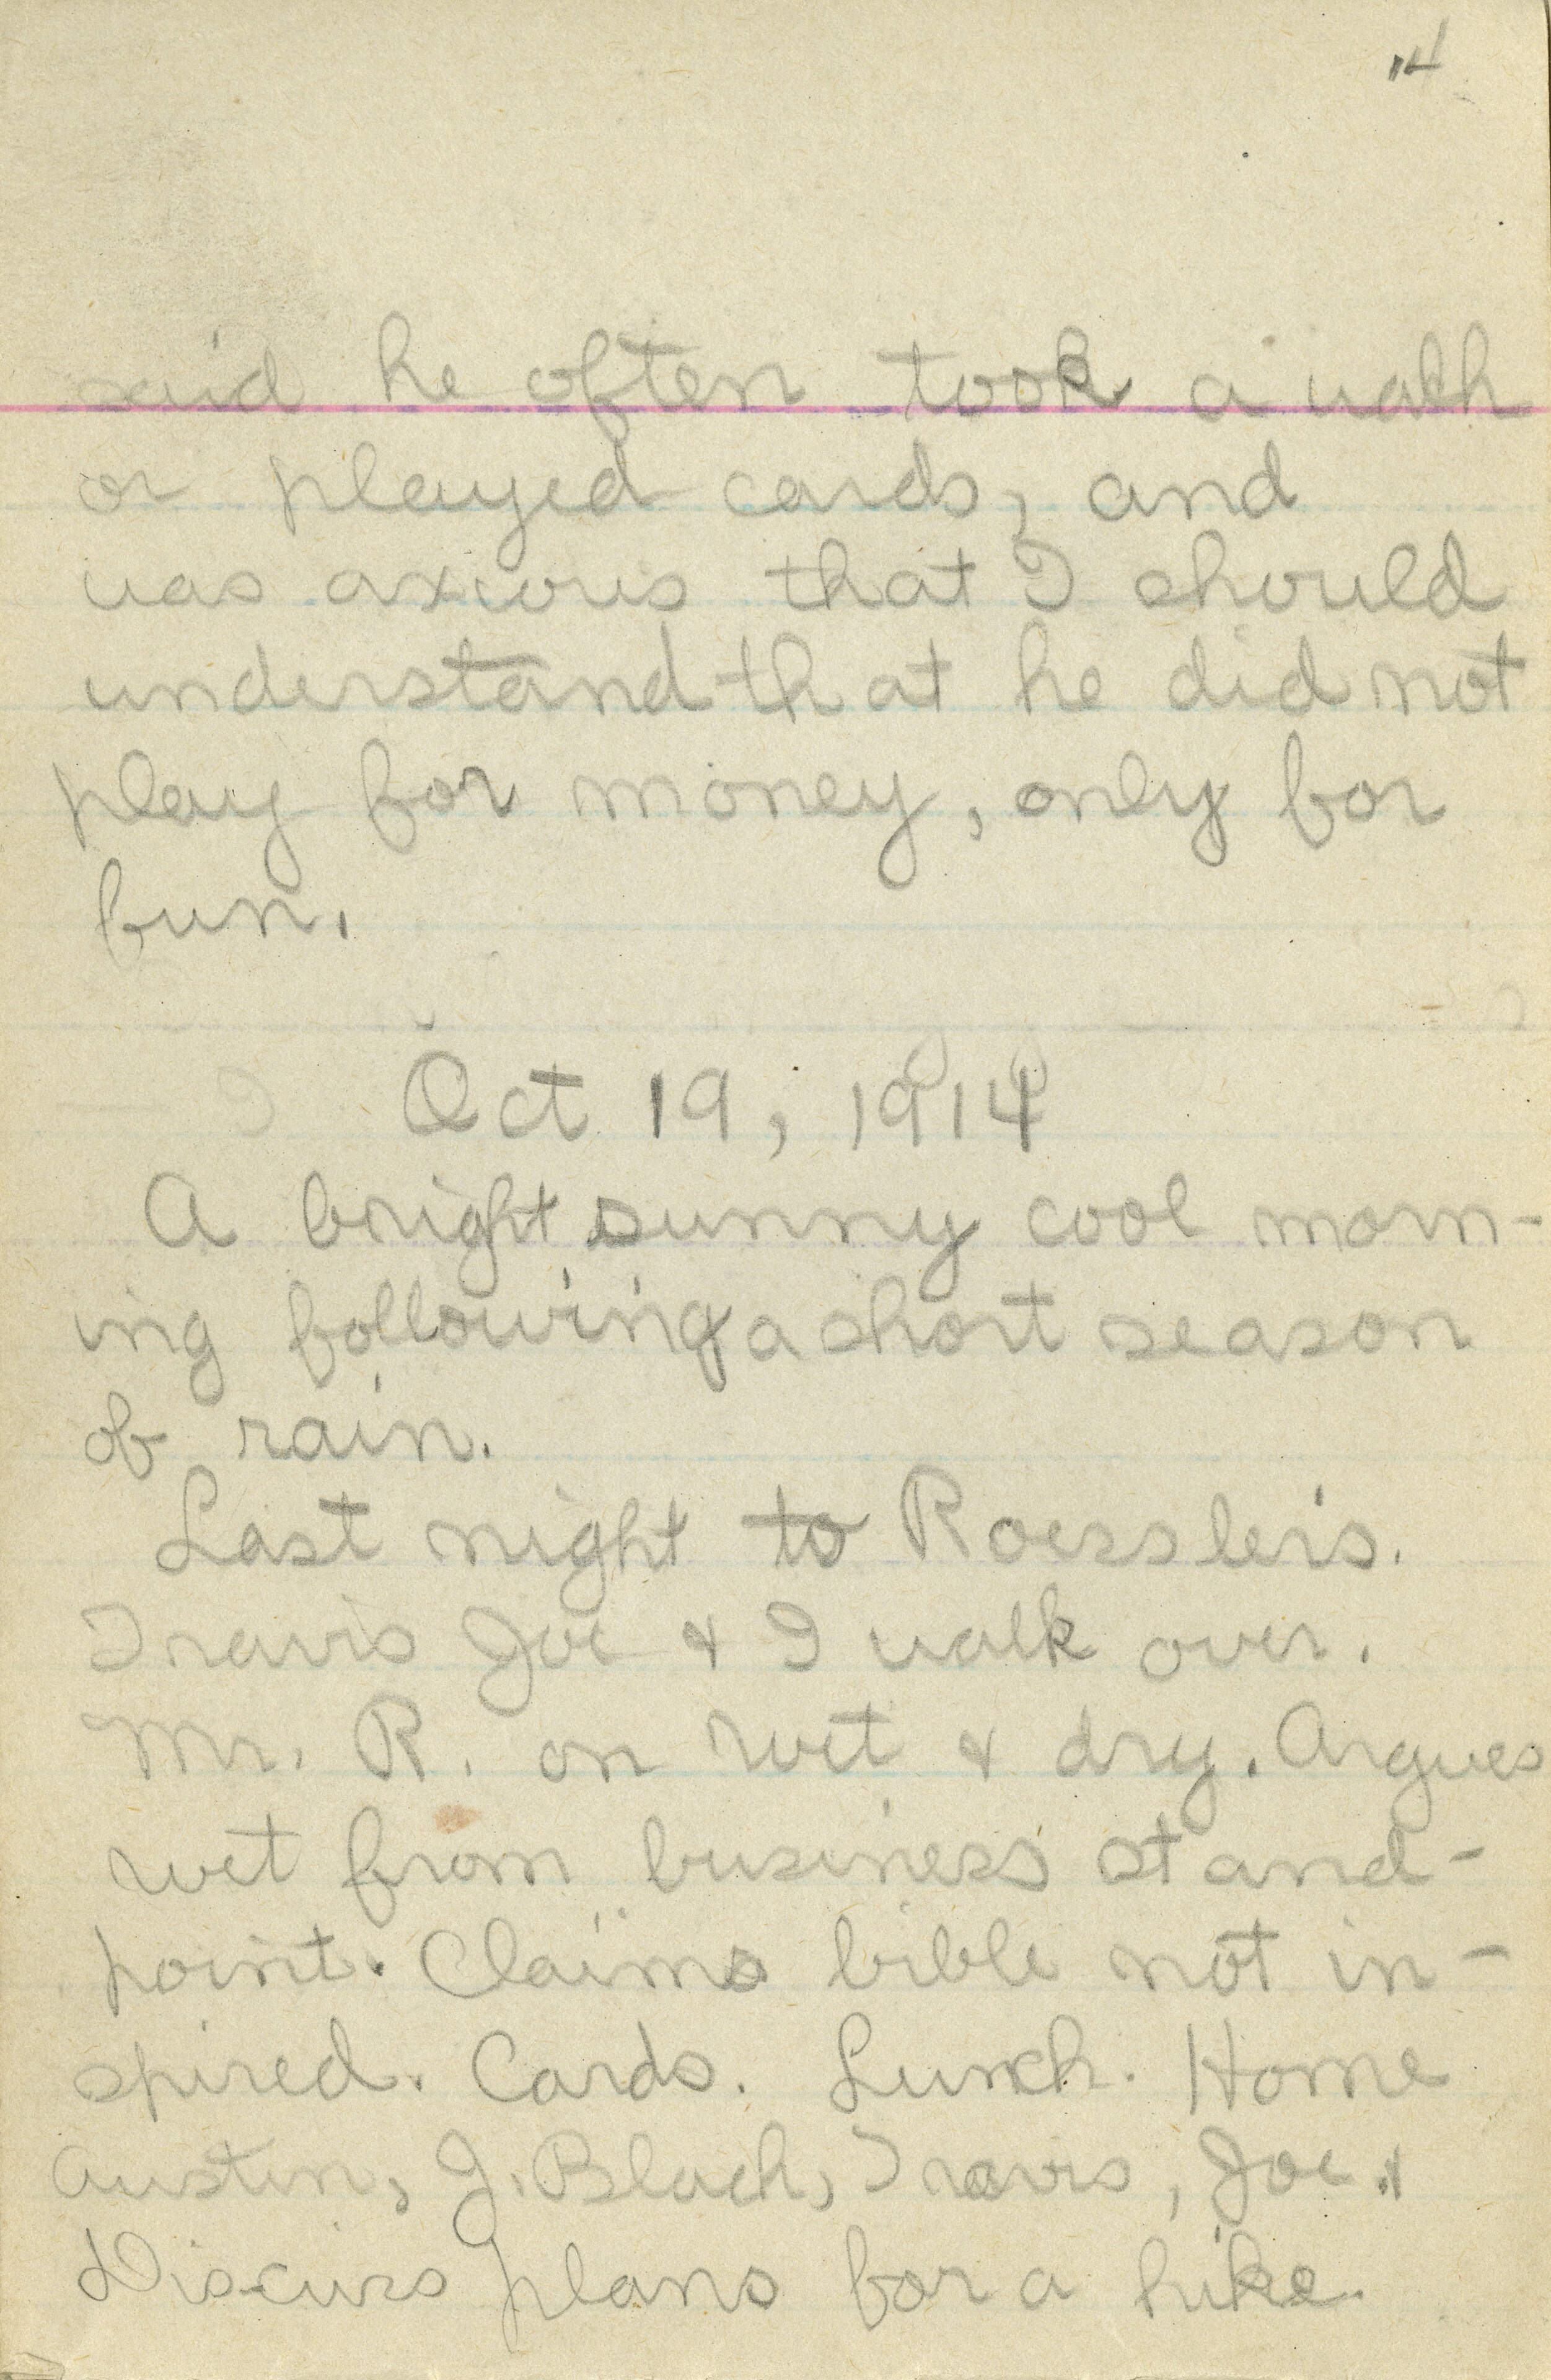 said he often took a walk
or played cards, and
was axious that I should
understand that he did not
play for money, only for
fun.
Oct 19, 1914
A bright sunny cool morn-
ing following a short season
of rain.
Last night to Roessler's.
Travis Joe & I walk over.
Mr. R. on wet & dry. Argues
wet from business stand-
point. Claims bible not in-
spired. Cards. Lunch. Home
Austin, J. Black, Travis, Joe &
Discuss plans for a hike.